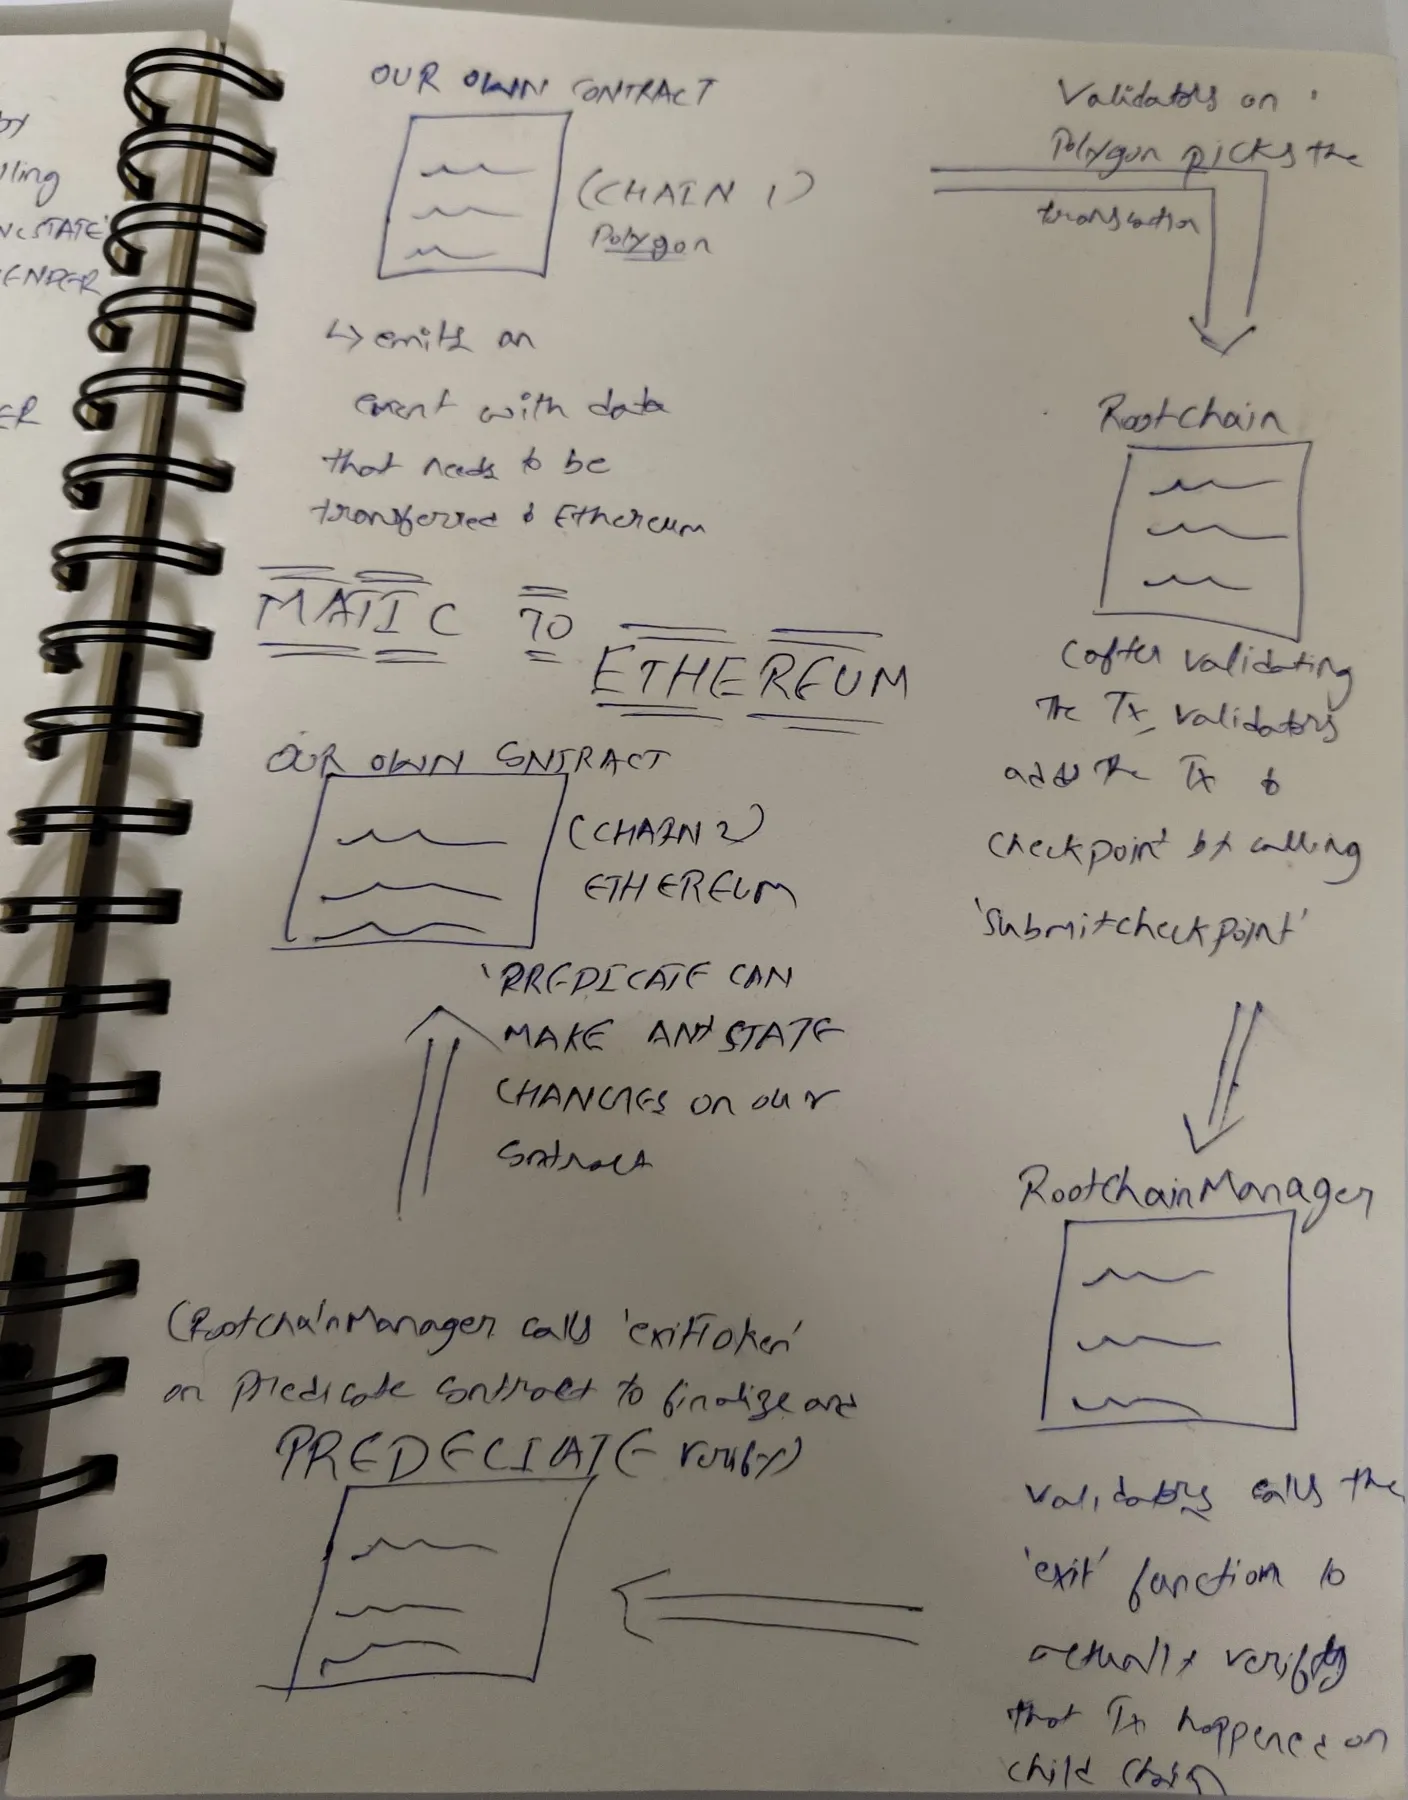 by
lling
STATE'
ENDER
ER
OUR OWN CONTRACT
(CHAIN 1)
Polygon
↳ emits an
event with data
that needs to be
transferred to Ethereum
Validators on
Polygon picks the
transaction
RootChain
(after validating
the Tx, validators
adds the Tx to
checkpoint by calling
'submitcheckpoint'
MATIC TO
ETHEREUM
OUR OWN CONTRACT
(CHAIN 2)
ETHEREUM
'PREDICATE CAN
MAKE ANY STATE
CHANGES on our
contract
RootChainManager
validators calls the
'exit' function to
actually verify
that Tx happened on
child chain
(RootchainManager calls 'exitToken'
on predicate contract to finalize and
PREDECIATE verify)